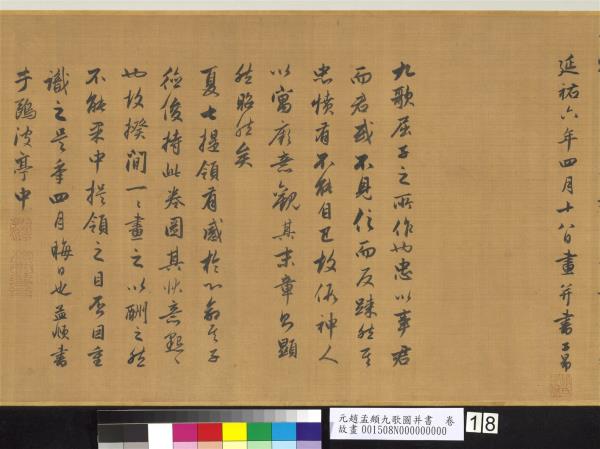 延祐六年四月十八日畫并書 子昂
九歌屈子之所作也忠以事君
而君或不見信而反踈然其
忠憤有不能自已故假神人
以寓厥意觀其末章則顯
然昭然矣
夏七提領有感於心其子
俊持此卷圖其意
也故一一畫之以酬之然
不能果中提領之目否因重
識之是年四月晦日也孟頫書
于鷗波亭中
元趙孟頫九歌圖并書 卷
故畫 001508N000000000
18